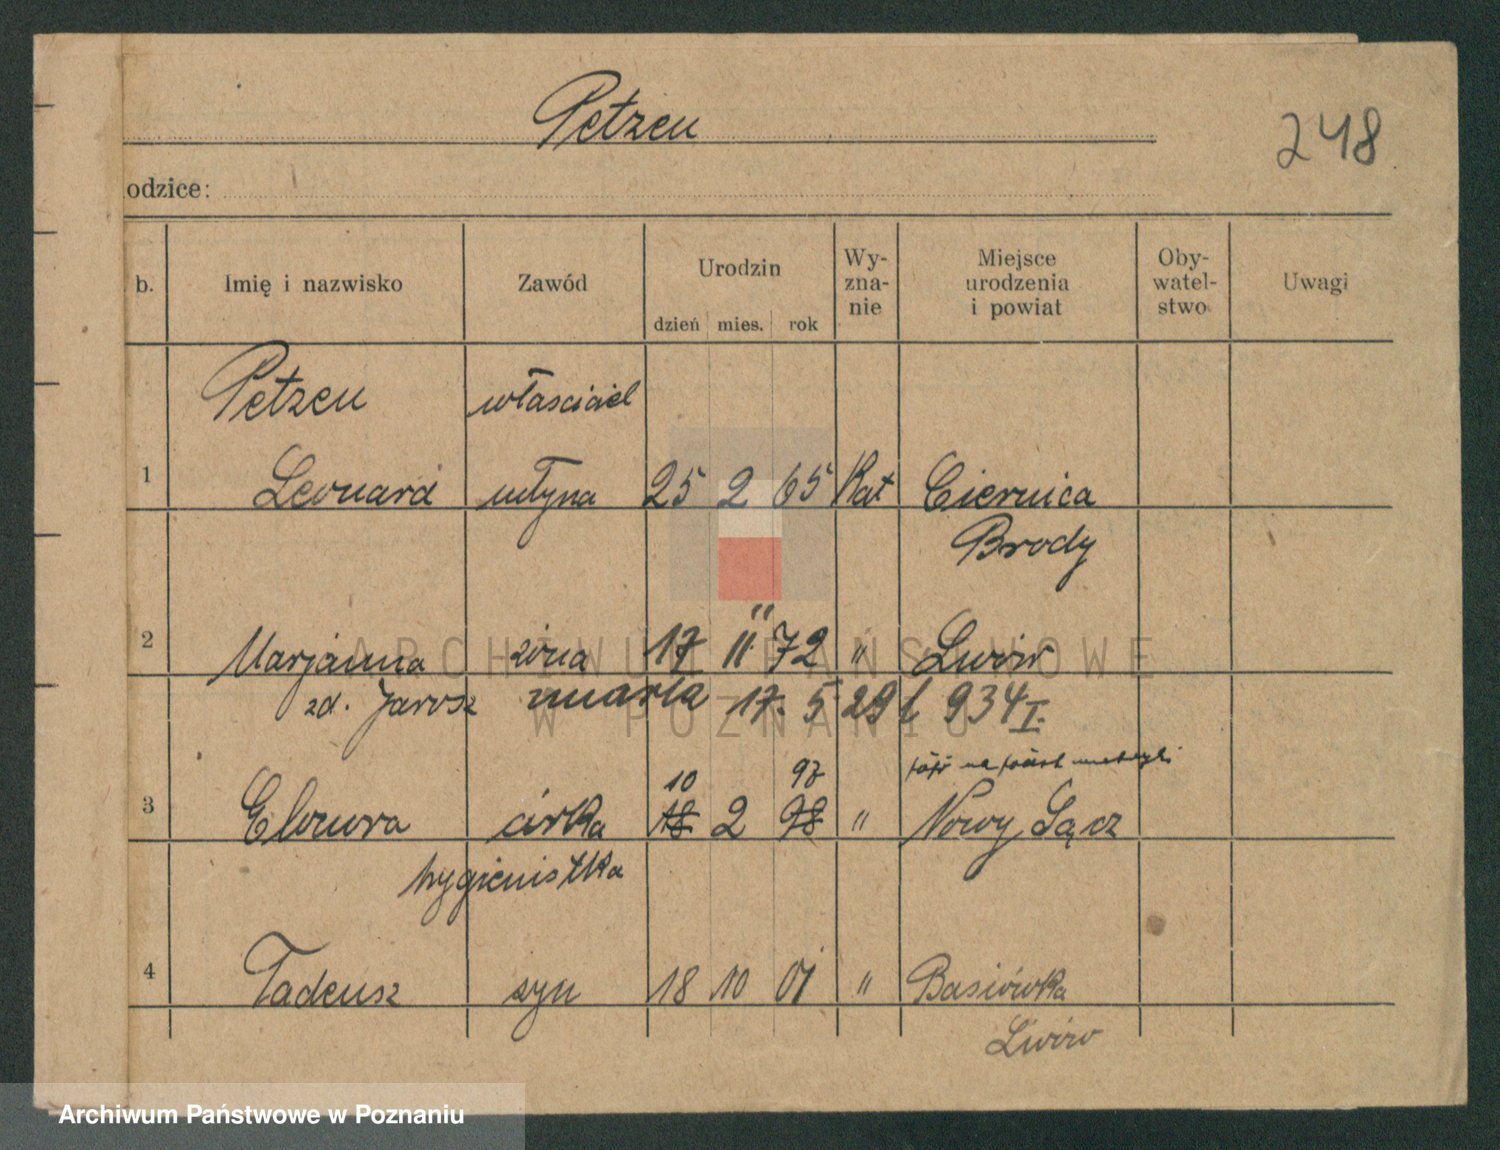 Petzeu
248
odzice:
b. Imię i nazwisko Zawód Urodzin Wy-zna-nie Miejsce urodzenia i powiat Oby-watel-stwo Uwagi
dzień mies. rok
Petzeu właściciel
1 Leonard młyna 25 2 65 Kat Ciernica
Brody
2 Marjanna żona 17 11 72 " Lwów
zd. Jarosz zmarła 17. 5 29 934 I.
10 97
3 Eleonora córka 18 2 98 " Nowy Sącz
hygienistka
4 Tadeusz syn 18 10 01 " Basiówka
Lwów
ARCHIWUM PAŃSTWOWE
W POZNANIU
Archiwum Państwowe w Poznaniu